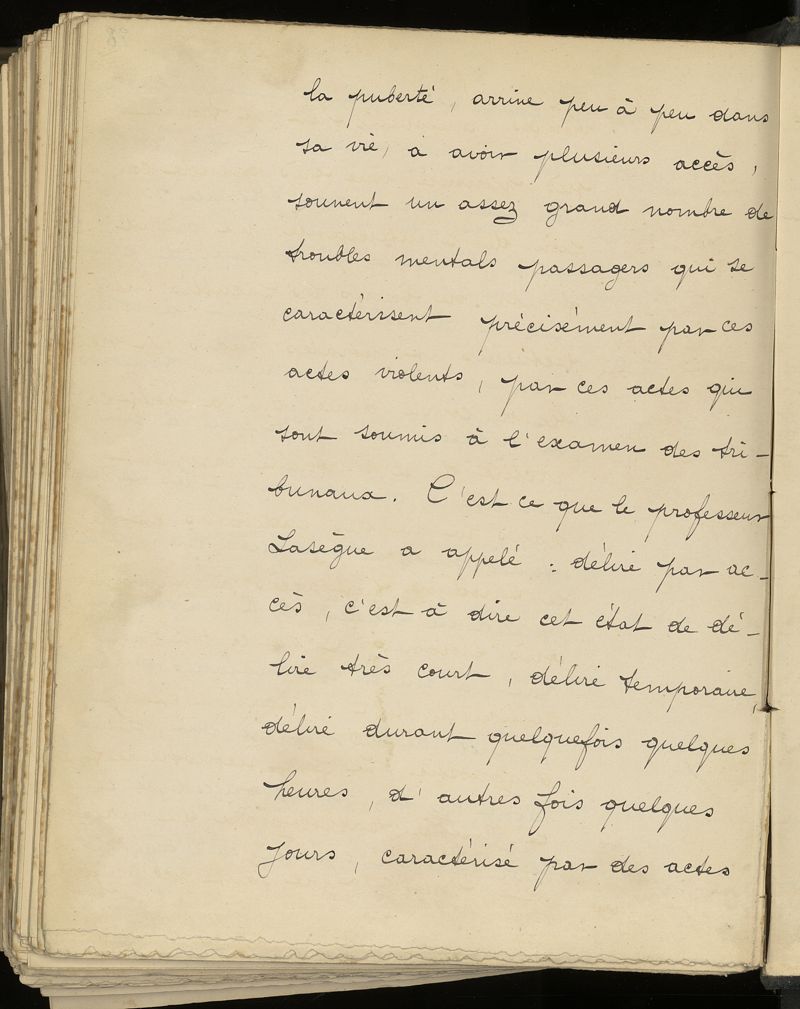 la puberté, arrive peu à peu dans
sa vie, à avoir plusieurs accès,
souvent un assez grand nombre de
troubles mentals passagers qui se
caractérissent précisément par ces
actes violents, par ces actes qui
sont soumis à l'examen des tri-
bunaux. C'est ce que le professeur
Lasègue a appelé : délire par ac-
cès, c'est à dire cet état de dé-
lire très court, délire temporaire,
délire durant quelquefois quelques
heures, d'autres fois quelques
jours, caractérisé par des actes